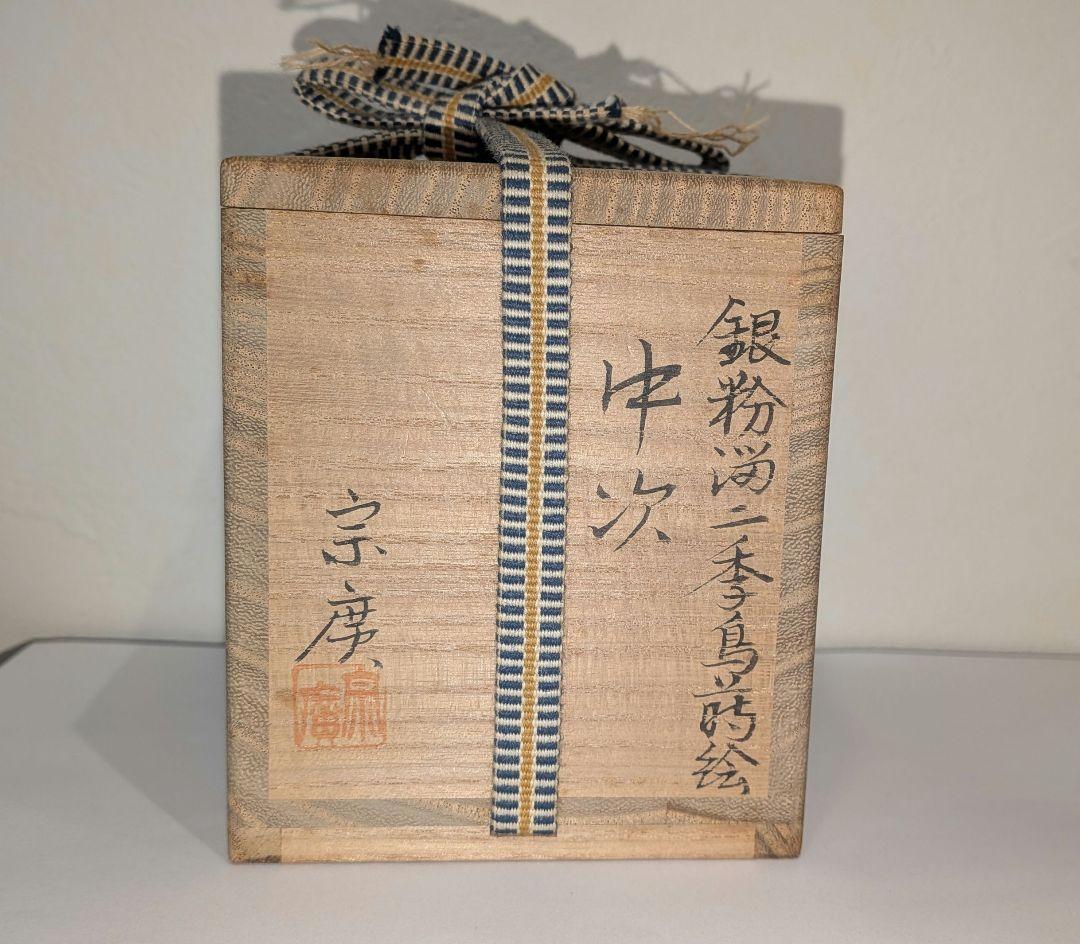 銀粉溜二季鳥蒔絵
中次
宗廣
宗廣